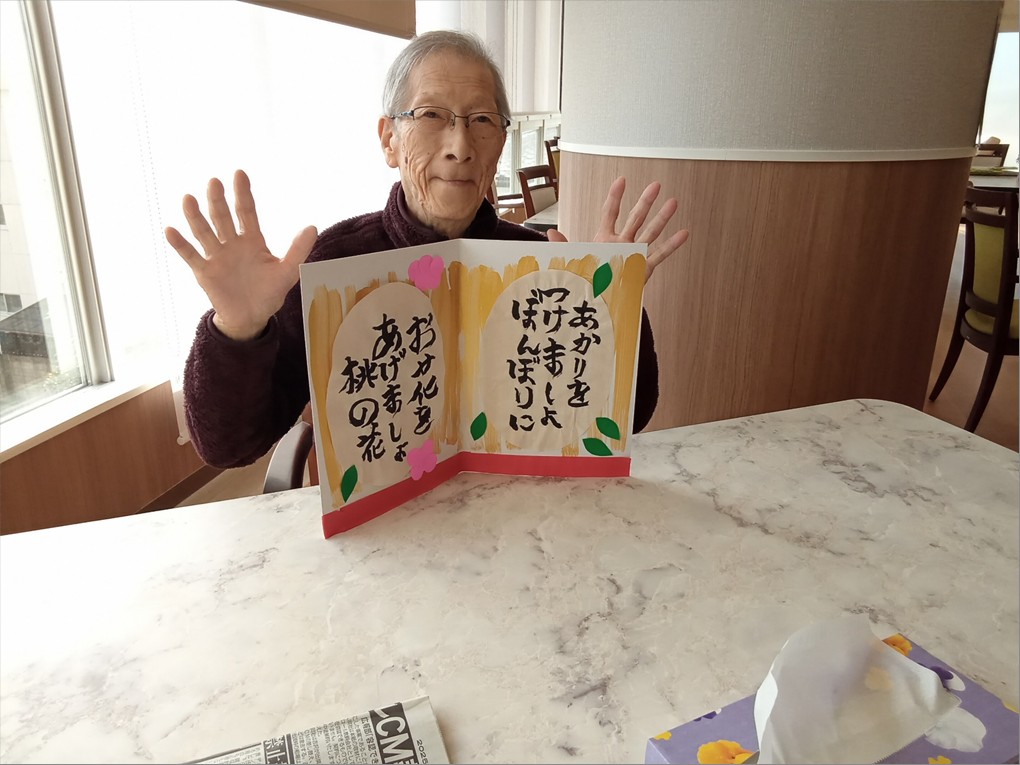 あかりを
つけましょ
ぼんぼりに
お花を
あげましょ
桃の花
CM
2025